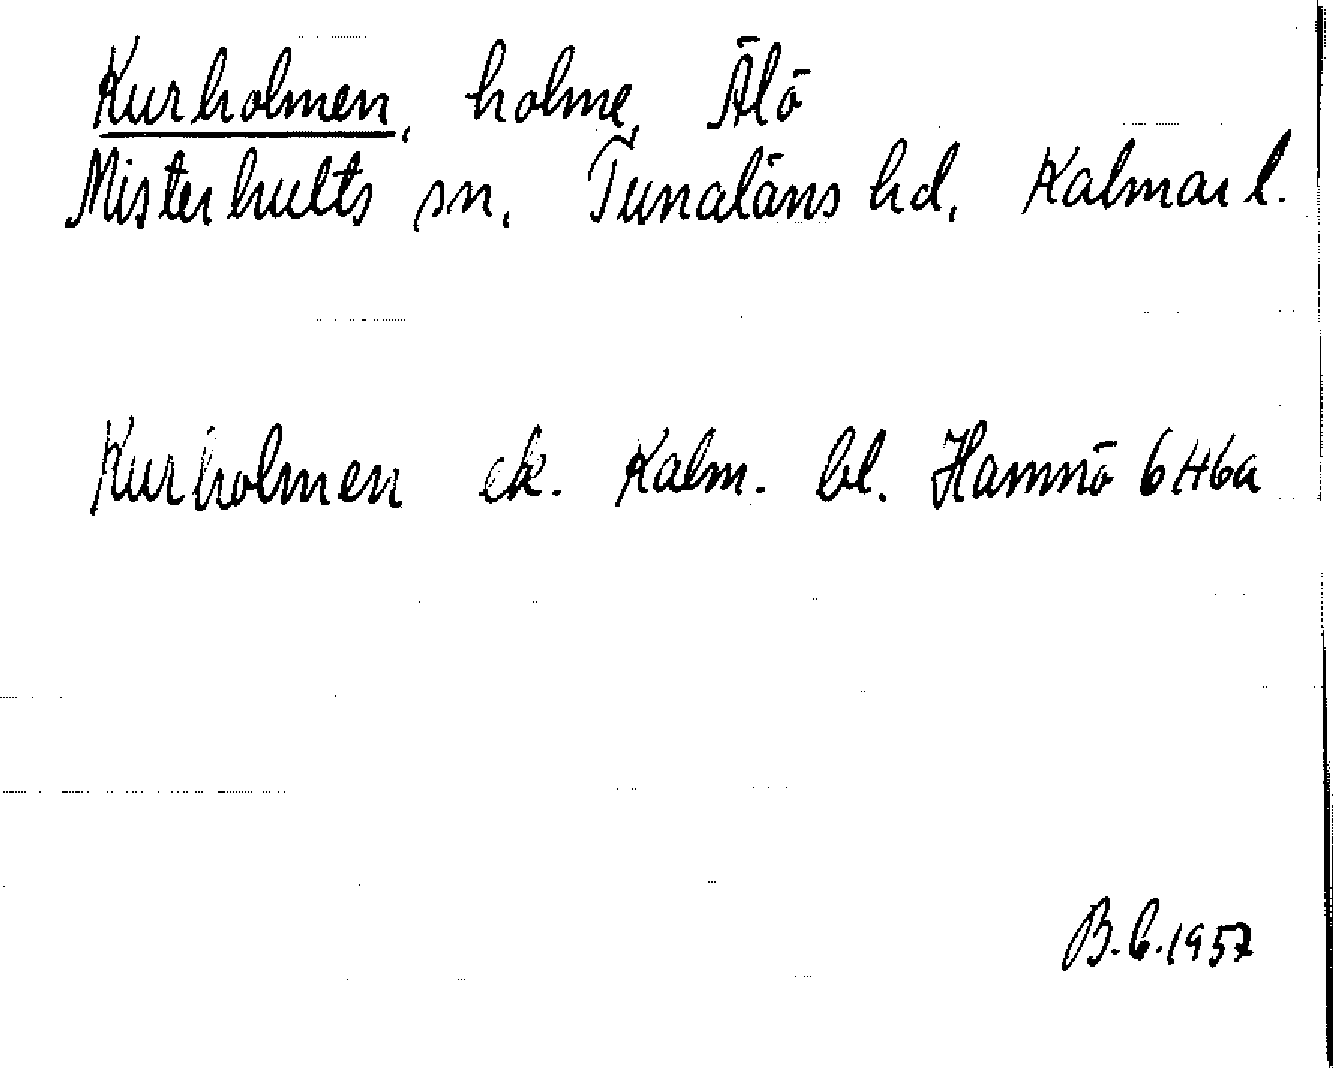 Kurholmen, holme, Älö
Misterhults sn, Tunaläns hd, Kalmar l.
Kurholmen ek. Kalm. bl. Hamnö 6H6a
B.C.1957